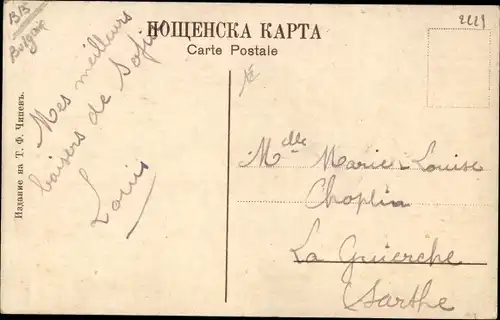 BB
Bulgarie
2229
ПОЩЕНСКА КАРТА
Carte Postale
Æ
Mes meilleurs
baisers de Sofia
Louis
Mdlle Marie-Louise
Choplin
La Guierche
Sarthe
Издание на Т. Ф. Чипевъ.